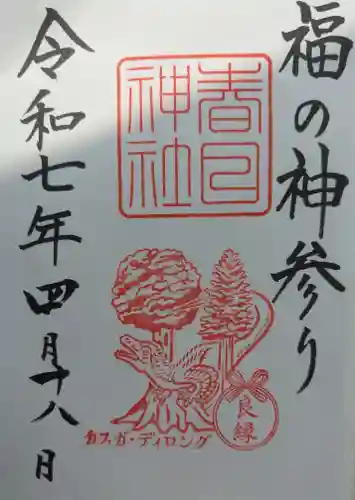 福の神参り
春日
神社
良縁
カスガ・ディロング
令和七年四月十八日